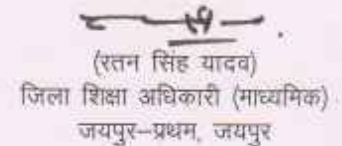 (रतन सिंह यादव)
जिला शिक्षा अधिकारी (माध्यमिक)
जयपुर–प्रथम, जयपुर